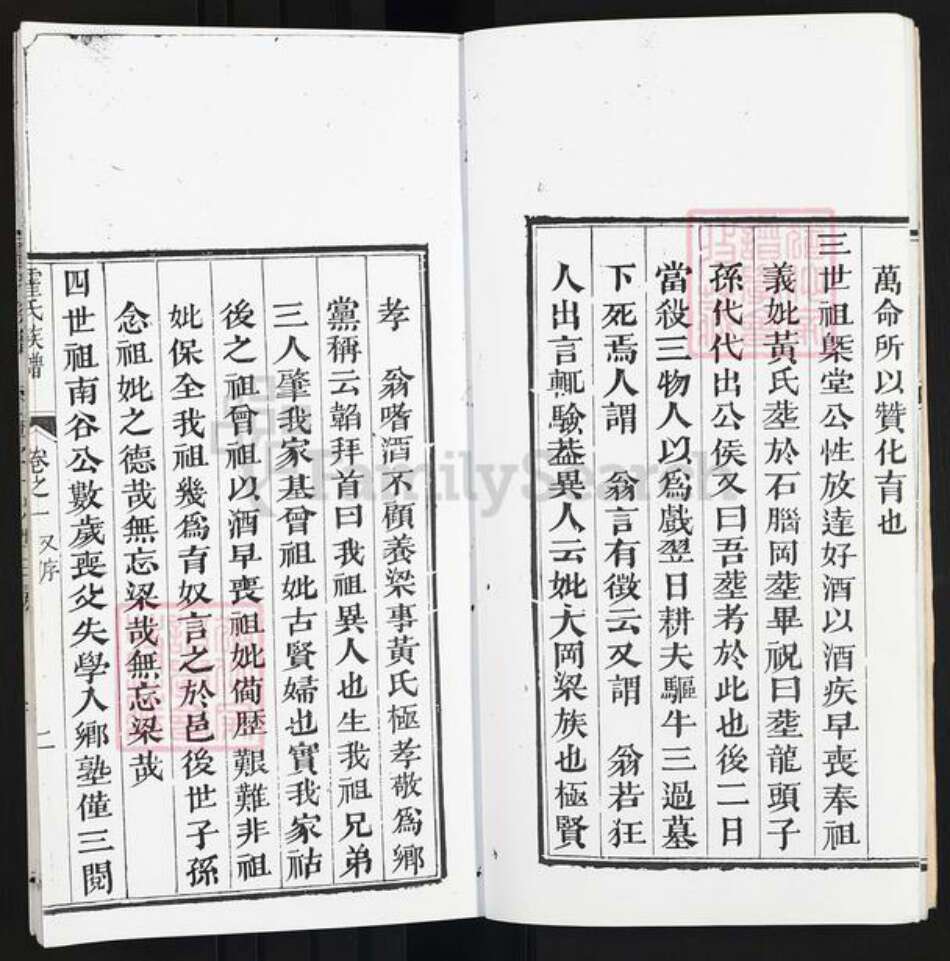 萬命所以贊化育也
三世祖槩堂公性放達好酒以酒疾早喪奉祖
義妣黃氏塟於石腦岡塟畢祝曰塟龍頭子
孫代代出公侯又曰吾塟考於此也後二日
當殺三物人以爲戲翌日耕夫驅牛三過墓
下死焉人謂　翁言有徵云又謂　翁若狂
人出言輒驗葢異人云妣大岡梁族也極賢
孝　翁嗜酒不顧養梁事黃氏極孝敬爲鄉
黨稱云韜拜首曰我祖異人也生我祖兄弟
三人肇我家基曾祖妣古賢婦也實我家祜
後之祖曾祖以酒早喪祖妣備歷艱難非祖
妣保全我祖幾爲育奴言之於邑後世子孫
念祖妣之德哉無忘梁哉無忘梁哉
四世祖南谷公數歲喪父失學入鄉塾僅三閱
霍氏族譜
卷之一 又序
二
FamilySearch